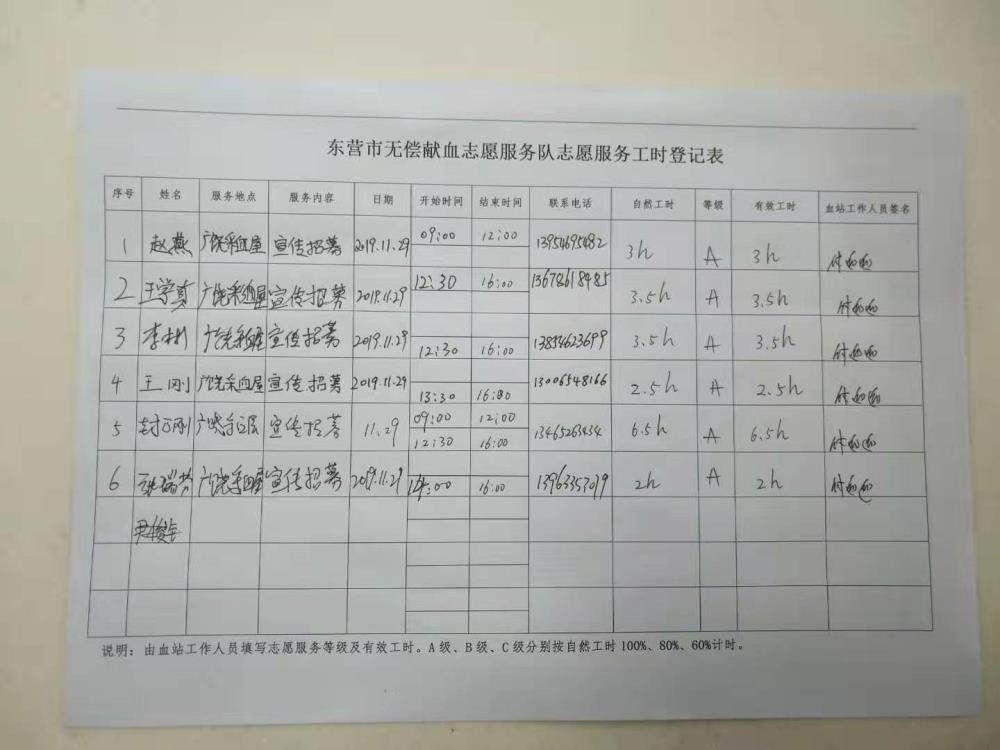 东营市无偿献血志愿服务队志愿服务工时登记表
序号 姓名 服务地点 服务内容 日期 开始时间 结束时间 联系电话 自然工时 等级 有效工时 血站工作人员签名
1 赵燕 广饶采血屋 宣传招募 2019.11.29 09:00 12:00 13954695482 3h A 3h
2 王学真 广饶采血屋 宣传招募 2019.11.29 12:30 16:00 13678618485 3.5h A 3.5h
3 李彬 广饶采血屋 宣传招募 2019.11.29 12:30 16:00 13854623699 3.5h A 3.5h
4 王刚 广饶采血屋 宣传招募 2019.11.29 13:30 16:00 13006548166 2.5h A 2.5h
5 广饶采血屋 宣传招募 11.29 09:00 12:00 13465263434 6.5h A 6.5h
12:30 16:00
6 张瑞芳 广饶采血屋 宣传招募 2019.11.29 14:00 16:00 13963353079 2h A 2h
说明：由血站工作人员填写志愿服务等级及有效工时。A 级、B 级、C 级分别按自然工时 100%、80%、60%计时。